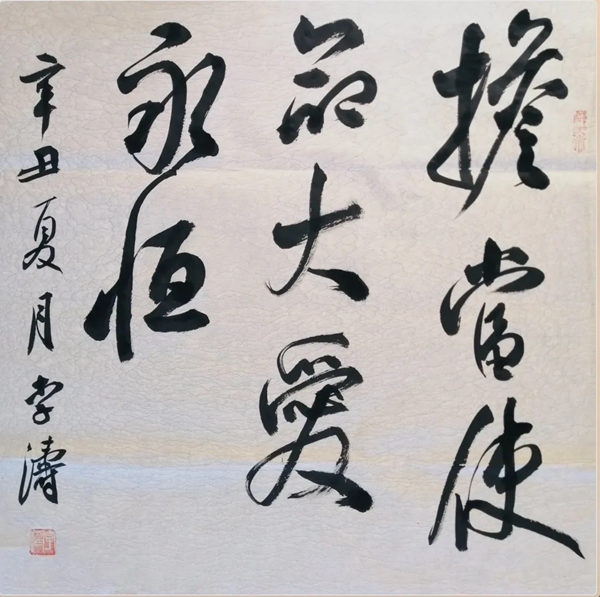 擔當使
命大愛
永恒
辛丑夏月李濤